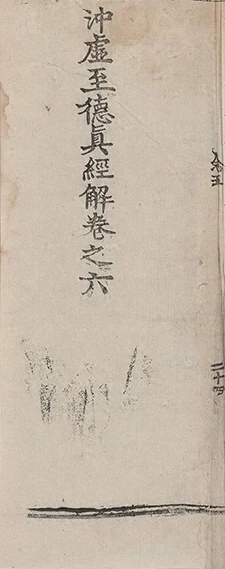 沖虛至德眞經解卷之六
二十四